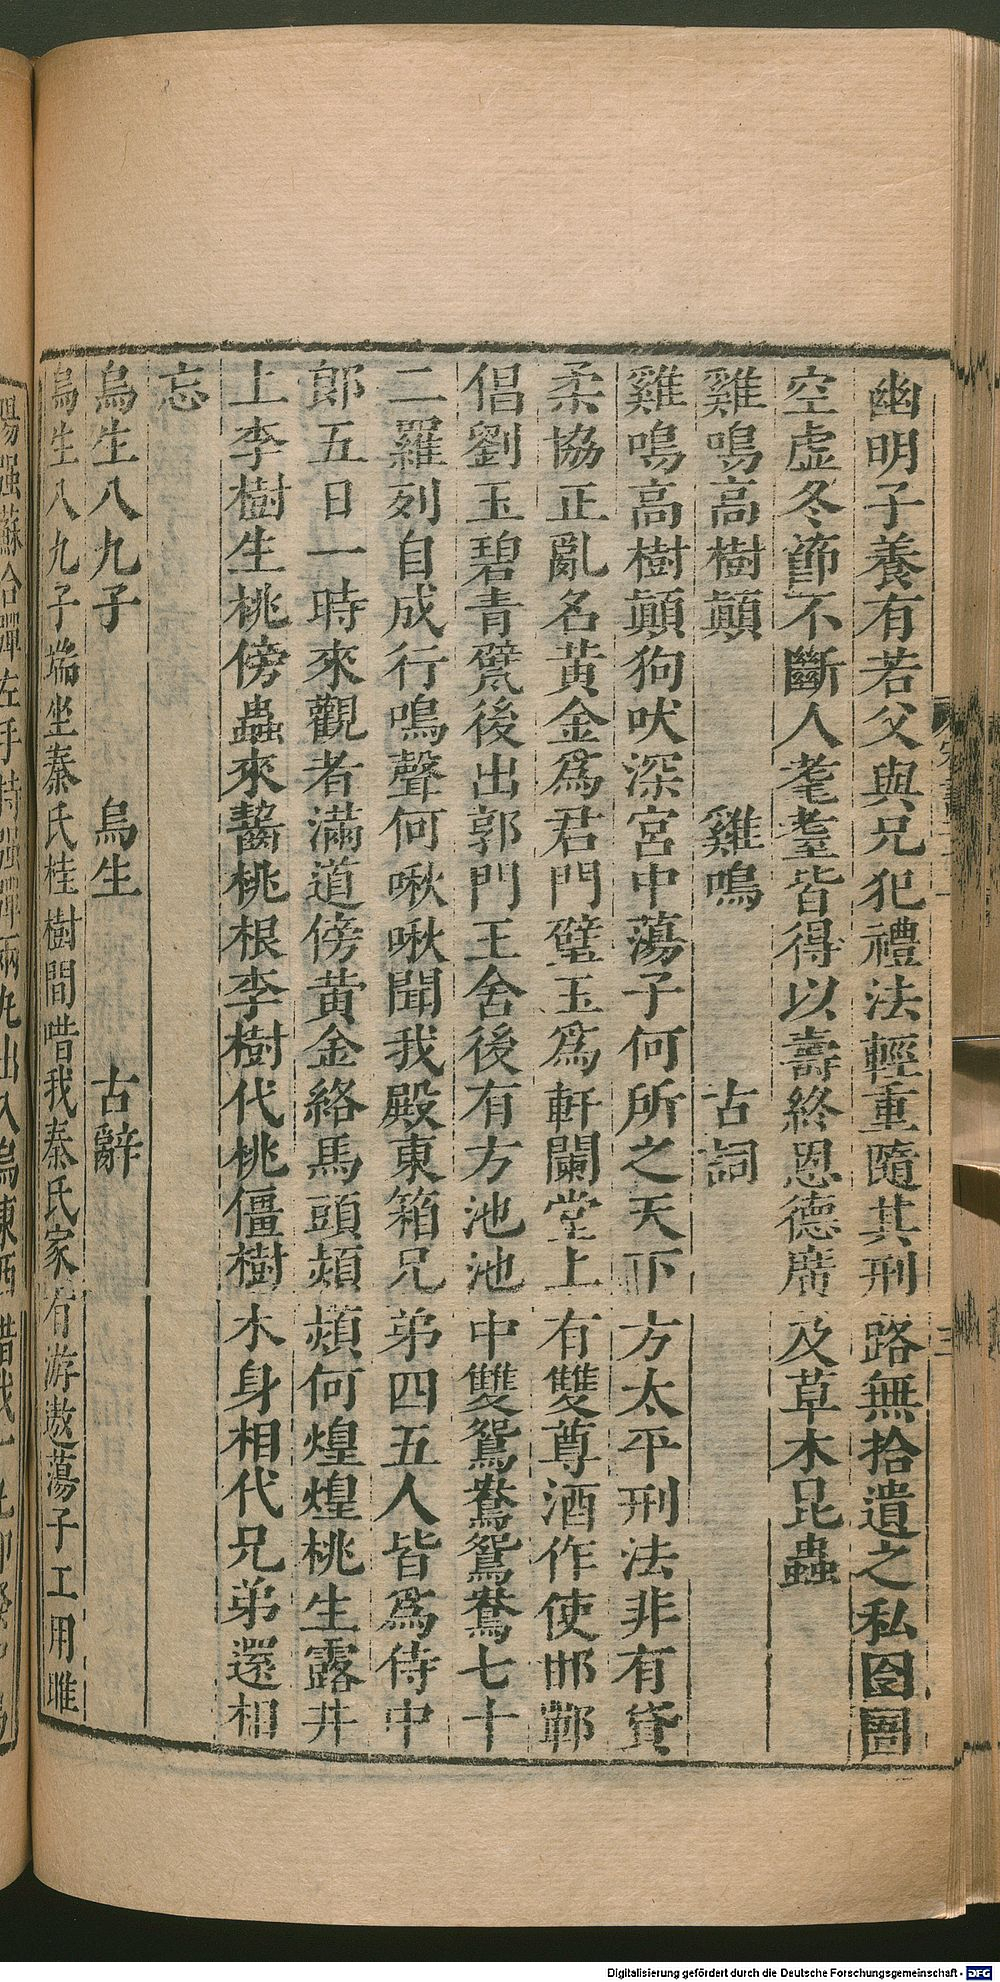 幽明子養有若父與兄犯禮法輕重隨其刑路無拾遺之私囹圄
空虛冬節不斷人耄耋皆得以壽終恩德廣及草木昆蟲
雞鳴高樹顚 雞鳴 古詞
雞鳴高樹顚狗吠深宮中蕩子何所之天下方太平刑法非有貸
柔協正亂名黃金爲君門璧玉爲軒闌堂上有雙尊酒作使邯鄲
倡劉玉碧青甓後出郭門王舍後有方池池中雙鴛鴦鴛鴦七十
二羅列自成行鳴聲何啾啾聞我殿東箱兄弟四五人皆爲侍中
郎五日一時來觀者滿道傍黃金絡馬頭熲熲何煌煌桃生露井
上李樹生桃傍蟲來齧桃根李樹代桃僵樹木身相代兄弟還相
忘
烏生八九子 烏生 古辭
烏生八九子端坐秦氏桂樹間唶我秦氏家有游遨蕩子工用睢
陽強蘇合彈左手持強彈兩丸出入烏東西唶我
Digitalisierung gefördert durch die Deutsche Forschungsgemeinschaft - DFG